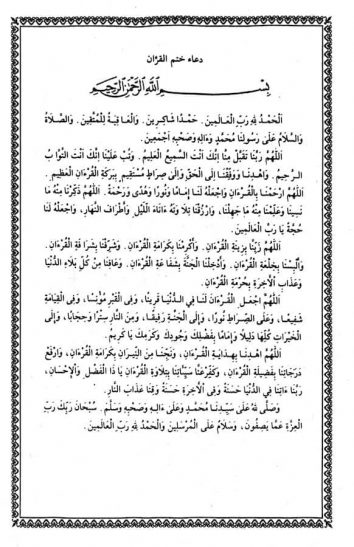 دعاء ختم القرءان
بِسْمِ ٱللَّهِ ٱلرَّحْمَٰنِ ٱلرَّحِيمِ
اَلْحَمْدُ لِلَّهِ رَبِّ الْعَالَمِينَ. حَمْدًا شَاكِرِينَ. وَالْعَاقِبَةُ لِلْمُتَّقِينَ. وَالصَّلَاةُ
وَالسَّلَامُ عَلَى رَسُولِنَا مُحَمَّدٍ وَءَالِهِ وَصَحْبِهِ أَجْمَعِينَ.
اَللَّهُمَّ رَبَّنَا تَقَبَّلْ مِنَّا إِنَّكَ أَنْتَ السَّمِيعُ الْعَلِيمُ. وَتُبْ عَلَيْنَا إِنَّكَ أَنْتَ التَّوَّابُ
الرَّحِيمُ. وَاهْدِنَا وَوَفِّقْنَا إِلَى الْحَقِّ وَإِلَى صِرَاطٍ مُسْتَقِيمٍ بِبَرَكَةِ الْقُرْءَانِ الْعَظِيمِ.
اَللَّهُمَّ ارْحَمْنَا بِالْقُرْءَانِ وَاجْعَلْهُ لَنَا إِمَامًا وَنُورًا وَهُدًى وَرَحْمَةً. اَللَّهُمَّ ذَكِّرْنَا مِنْهُ مَا
نَسِينَا وَعَلِّمْنَا مِنْهُ مَا جَهِلْنَا، وَارْزُقْنَا تِلَاوَتَهُ ءَانَاءَ اللَّيْلِ وَأَطْرَافَ النَّهَارِ، وَاجْعَلْهُ لَنَا
حُجَّةً يَا رَبَّ الْعَالَمِينَ.
اَللَّهُمَّ زَيِّنَّا بِزِينَةِ الْقُرْءَانِ. وَأَكْرِمْنَا بِكَرَامَةِ الْقُرْءَانِ. وَشَرِّفْنَا بِشَرَافَةِ الْقُرْءَانِ.
وَأَلْبِسْنَا بِخِلْعَةِ الْقُرْءَانِ. وَأَدْخِلْنَا الْجَنَّةَ بِشَفَاعَةِ الْقُرْءَانِ. وَعَافِنَا مِنْ كُلِّ بَلَاءِ الدُّنْيَا
وَعَذَابِ الْآخِرَةِ بِحُرْمَةِ الْقُرْءَانِ.
اَللَّهُمَّ اجْعَلِ الْقُرْءَانَ لَنَا فِي الدُّنْيَا قَرِينًا، وَفِي الْقَبْرِ مُؤْنِسًا، وَفِي الْقِيَامَةِ
شَفِيعًا، وَعَلَى الصِّرَاطِ نُورًا، وَإِلَى الْجَنَّةِ رَفِيقًا، وَمِنَ النَّارِ سِتْرًا وَحِجَابًا، وَإِلَى
الْخَيْرَاتِ كُلِّهَا دَلِيلًا وَإِمَامًا بِفَضْلِكَ وَجُودِكَ وَكَرَمِكَ يَا كَرِيمُ.
اَللَّهُمَّ اهْدِنَا بِهِدَايَةِ الْقُرْءَانِ، وَنَجِّنَا مِنَ النِّيرَانِ بِكَرَامَةِ الْقُرْءَانِ، وَارْفَعْ
دَرَجَاتِنَا بِفَضِيلَةِ الْقُرْءَانِ، وَكَفِّرْ عَنَّا سَيِّئَاتِنَا بِتِلَاوَةِ الْقُرْءَانِ يَا ذَا الْفَضْلِ وَالْإِحْسَانِ.
رَبَّنَا ءَاتِنَا فِي الدُّنْيَا حَسَنَةً وَفِي الْآخِرَةِ حَسَنَةً وَقِنَا عَذَابَ النَّارِ.
وَصَلَّى اللهُ عَلَى سَيِّدِنَا مُحَمَّدٍ وَعَلَى ءَالِهِ وَصَحْبِهِ وَسَلَّمَ. سُبْحَانَ رَبِّكَ رَبِّ
الْعِزَّةِ عَمَّا يَصِفُونَ، وَسَلَامٌ عَلَى الْمُرْسَلِينَ وَالْحَمْدُ لِلَّهِ رَبِّ الْعَالَمِينَ.